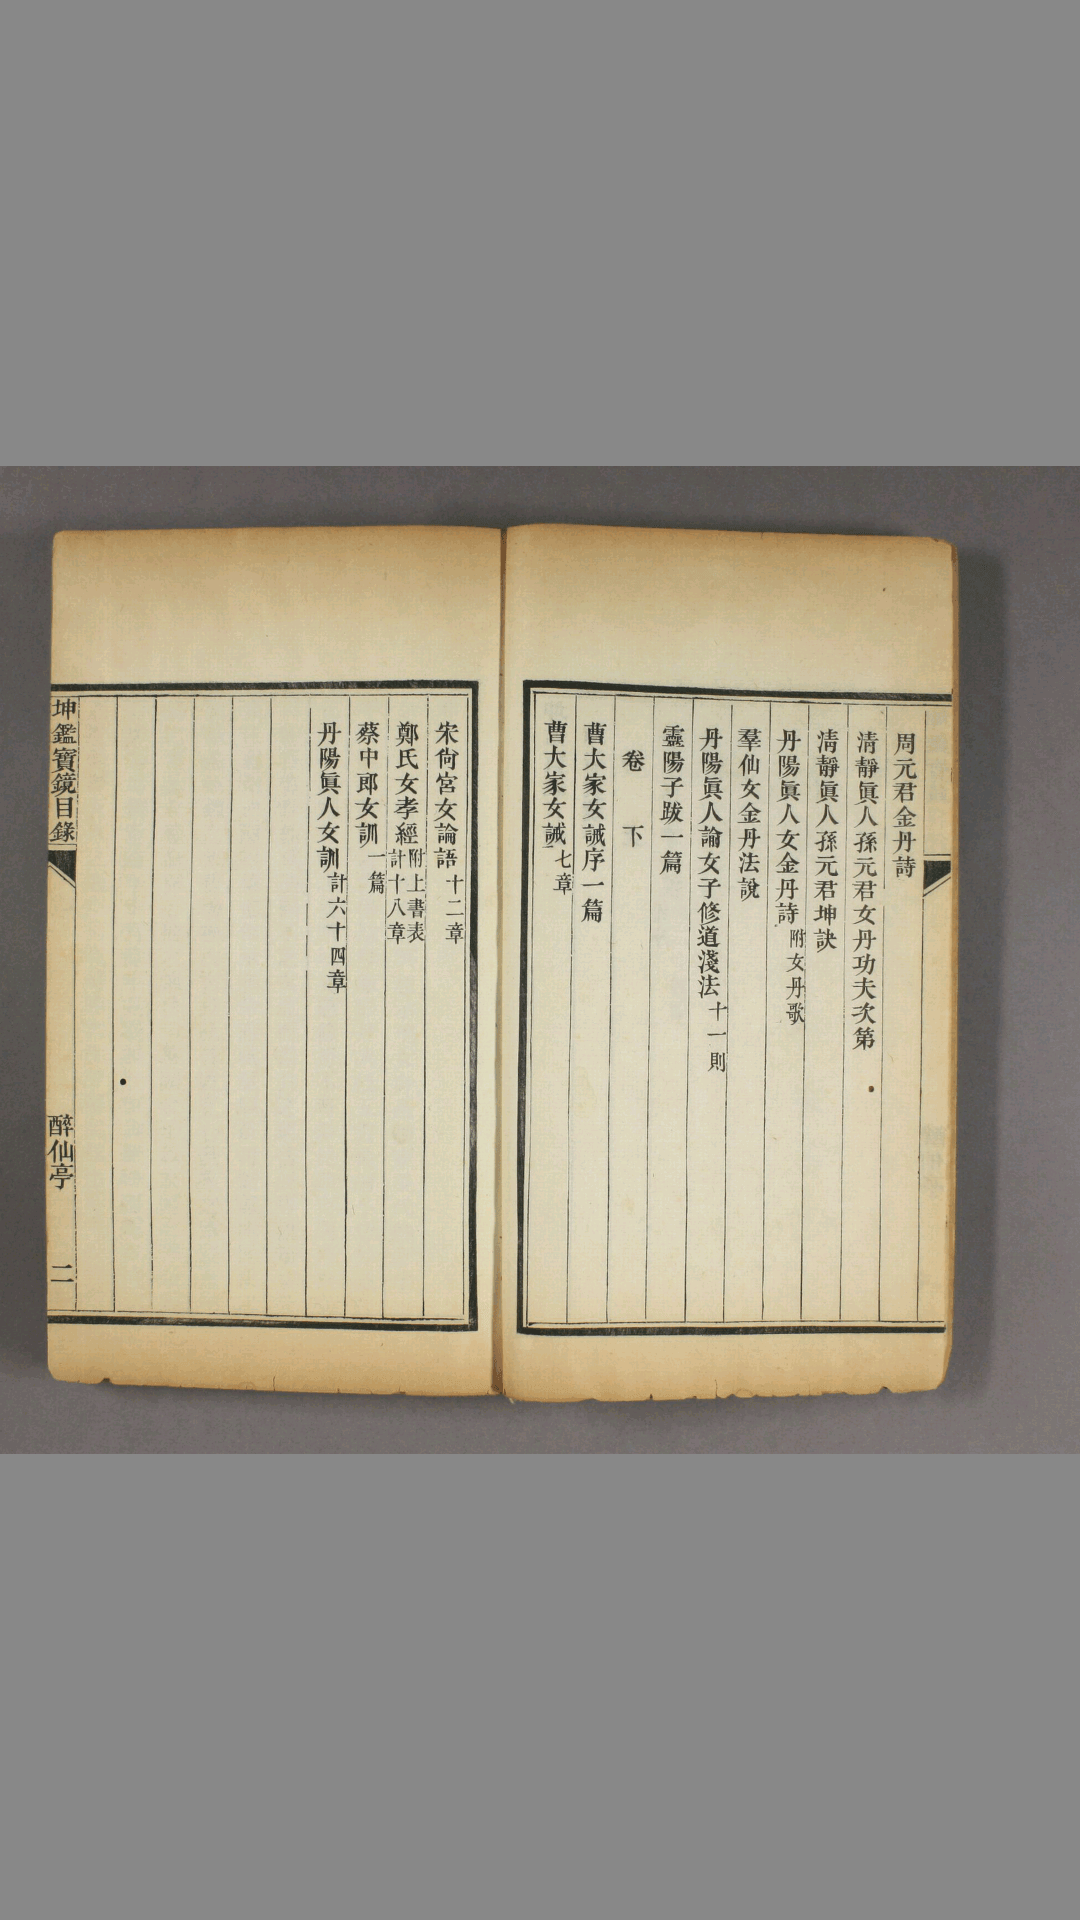 周元君金丹詩
清靜眞人孫元君女丹功夫次第
清靜眞人孫元君坤訣
丹陽眞人女金丹詩附女丹歌
羣仙女金丹法說
丹陽眞人論女子修道淺法十一則
靈陽子跋一篇
卷下
曹大家女誡序一篇
曹大家女誡七章
宋尙宮女論語十二章
鄭氏女孝經附上書表計十八章
蔡中郎女訓一篇
丹陽眞人女訓計六十四章
坤鑑寶鏡目錄
醉仙亭
二